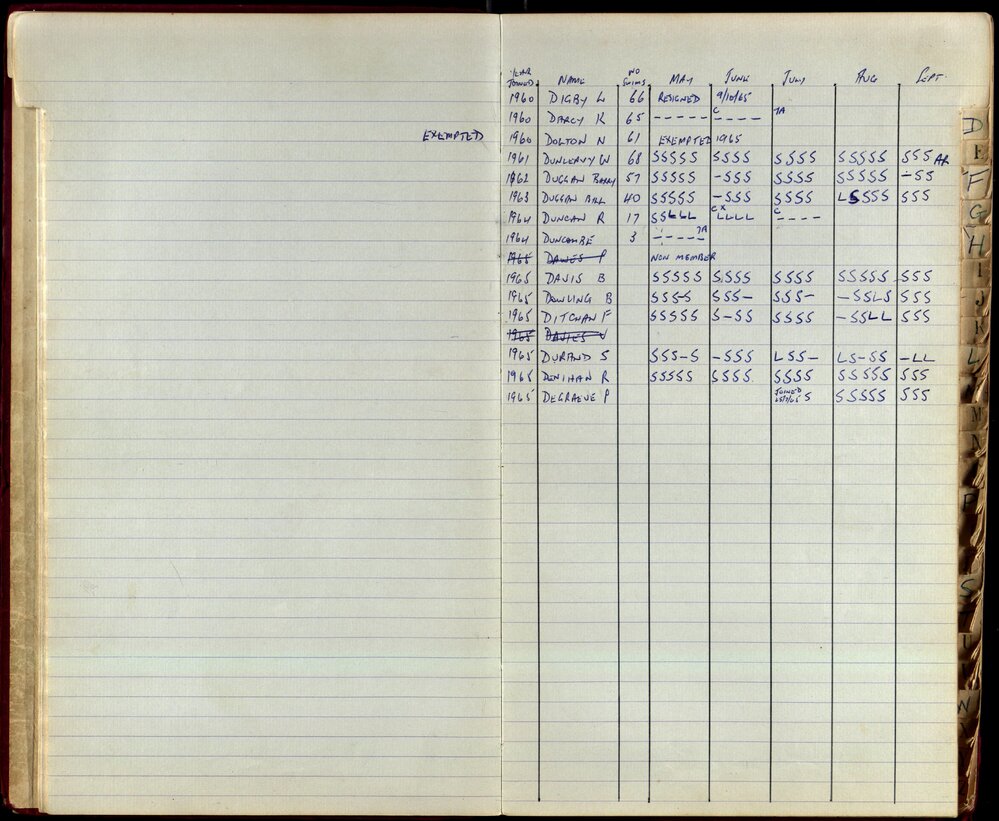 YEAR JOINED NAME NO SWIMS MAY JUNE JULY AUG SEPT
1960 DIGBY L 66 RESIGNED 9/10/65
1960 DARCY K 65 - - - - - C - - - - - TA
EXEMPTED 1960 DOLTON N 61 EXEMPTED 1965
1961 DUNLEAVY W 68 SSSSS SSSS SSSS SSSSS SSS AR
1962 DUGGAN BARRY 57 SSSSS -SSS SSSS SSSSS -SS
1963 DUGGAN BILL 40 SSSSS -SSS SSSS LSSSS SSS
1964 DUNCAN R 17 SSLLL C X LLLL C - - - -
1964 DUNCOMBE 3 - - - - - TA
1965 DAWES P NON MEMBER
1965 DAVIS B SSSSS SSSS SSSS SSSSS SSS
1965 DOWLING B SSS-S SSS- SSS- -SSLS SSS
1965 DITCHAN F SSSSS S-SS SSSS -SSLL SSS
1965 DAVIES J
1965 DURAND S SSS-S -SSS LSS- LS-SS -LL
1965 DENIHAN R SSSSS SSSS SSSS SSSSS SSS
1965 DEGRAEVE P JOINED S SSSSS SSS
D
E
F
G
H
I
J
K
L
M
N
P
S
T
U
W